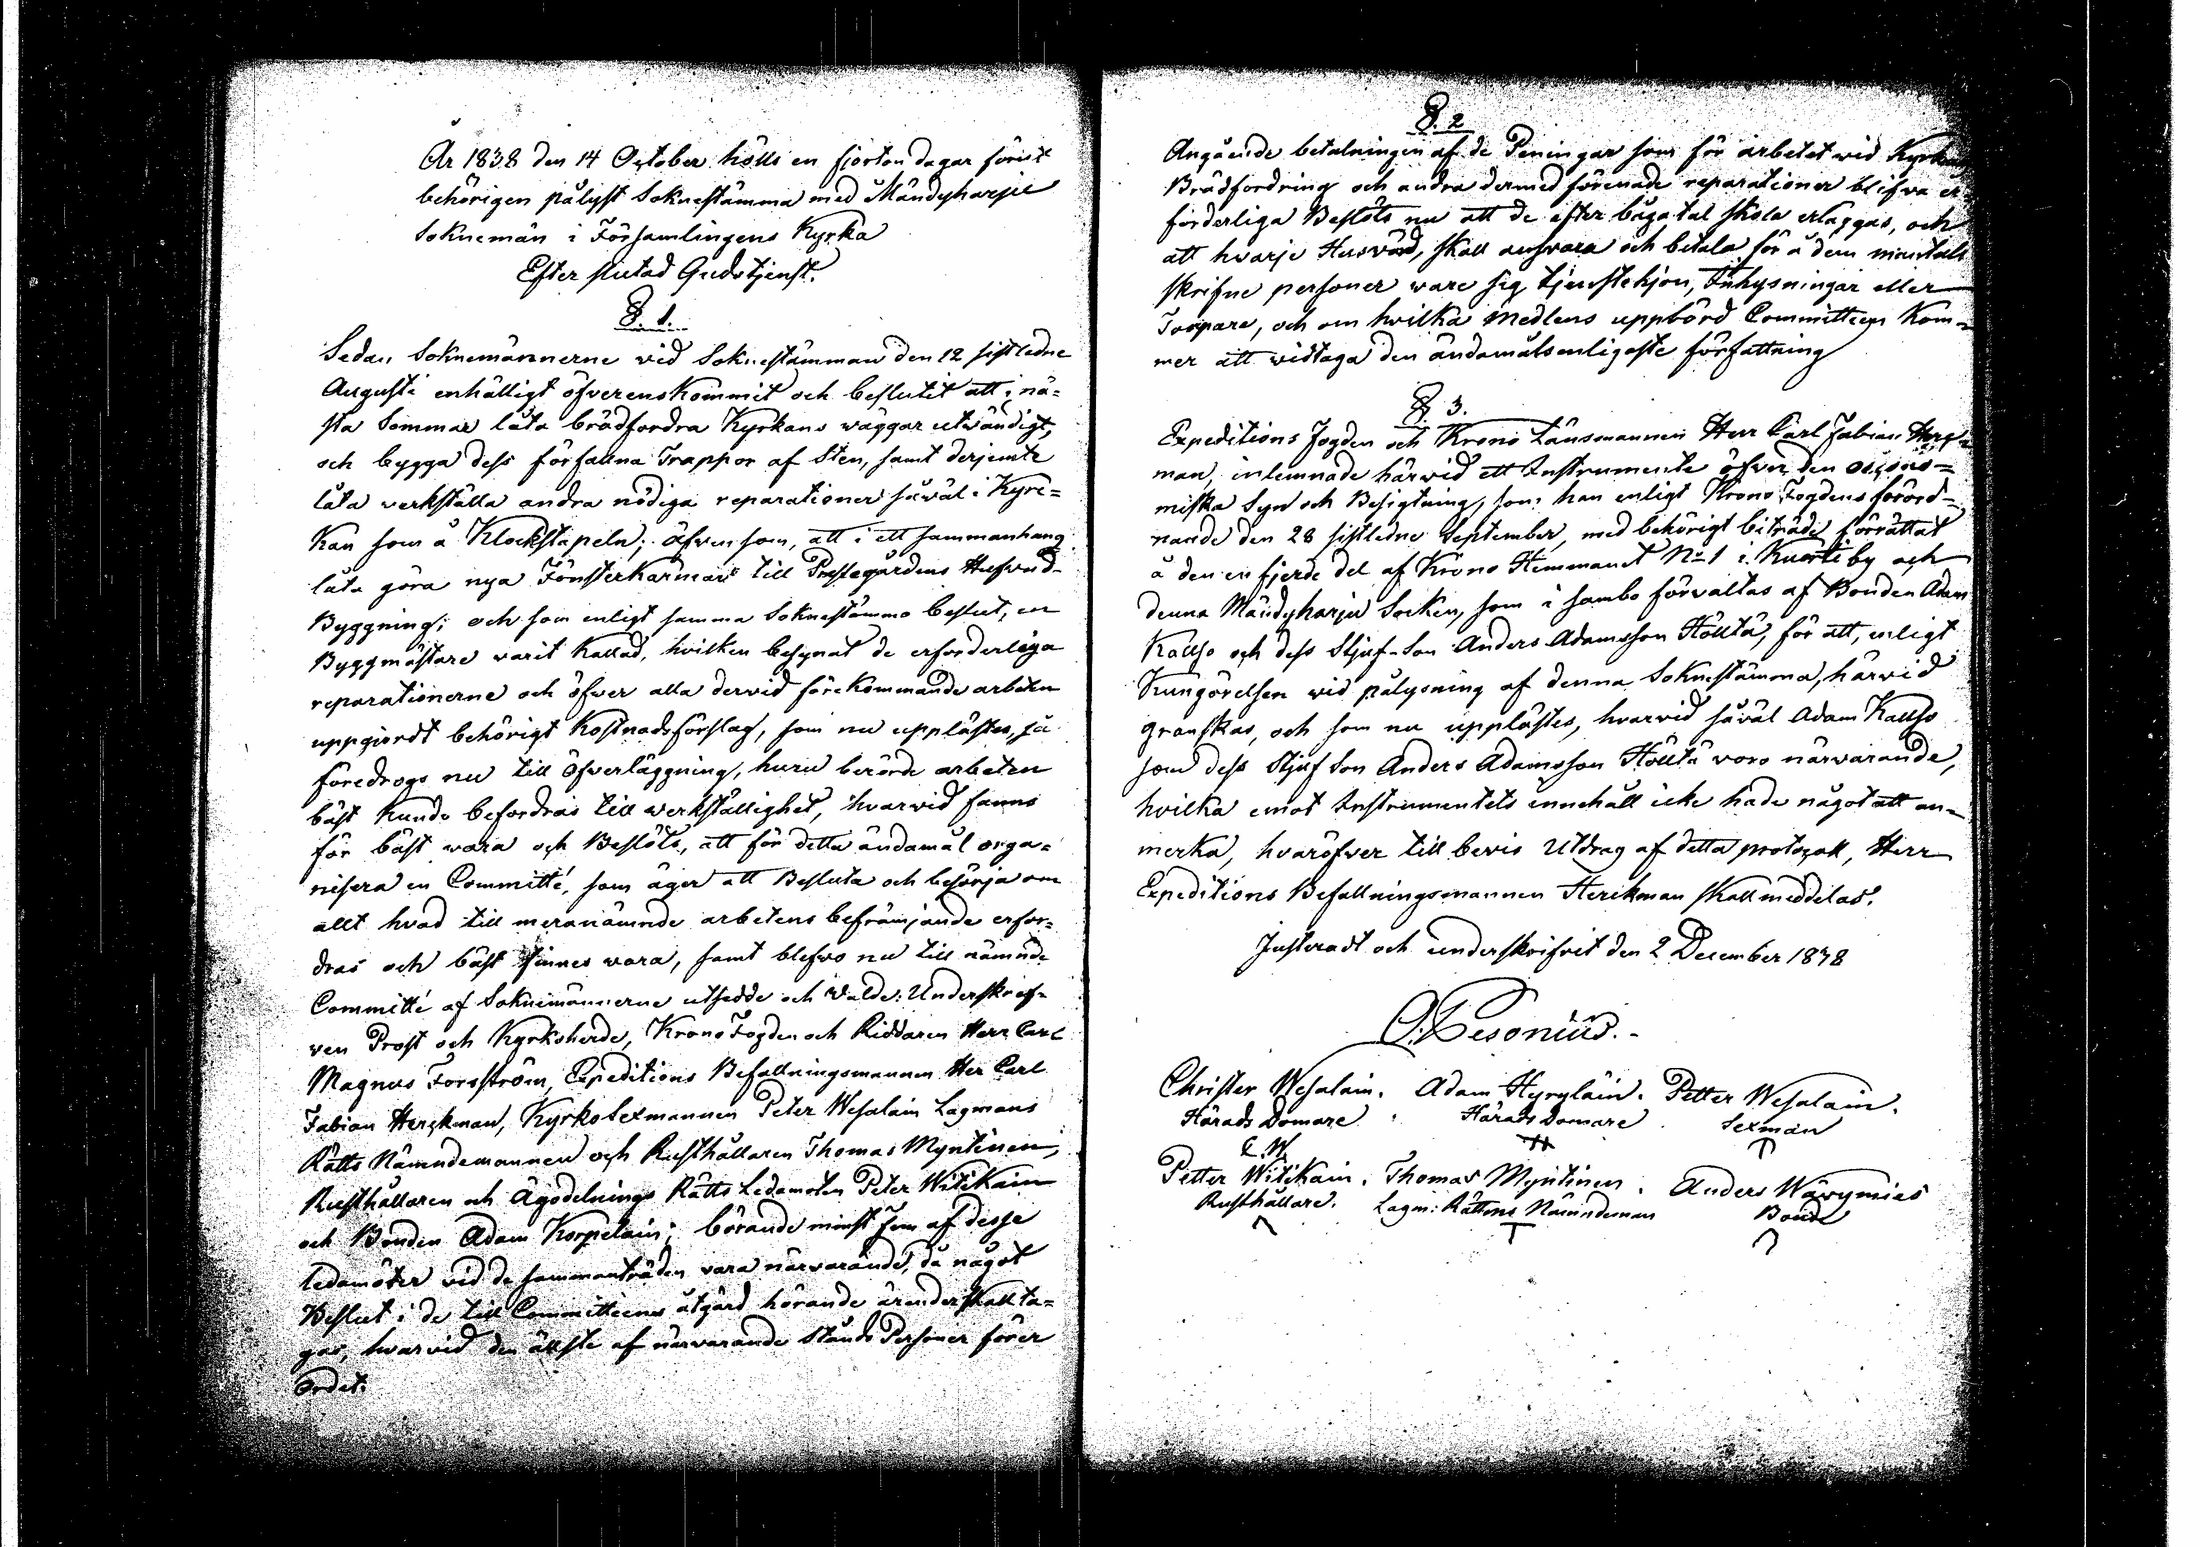 År 1838 den 14 October hölls en fjorton dagar förut
behörigen pålyst Soknestämma med Mändyharju
Soknemän i Församlingens Kyrka
Efter slutad Gudstjenst.
§. 1.
Sedan Soknemännerne vid Soknestämman den 12 sistledne
Augusti enhälligt öfverenskommit och beslutit att i nä=
sta Sommar låta brädfordra Kyrkans väggar utwändigt,
och bygga dess förfallna Trappor af Sten, samt derjemte
låta verkställa andra nödiga reparationer såwäl i Kyr=
kan som å Klockstapeln; äfwensom, att i ett sammanhang
låta göra nya Fönsterkarmar till Prestegårdens Hufwud-
Byggning; och som enligt samma Soknestämmo beslut, en
Byggmästare varit kallad, hvilken besynat de erforderliga
reparationerne och öfwer alla dervid förekommande arbeten
uppgjordt behörigt Kostnadsförslag, som nu upplästes, så
föredrogs nu till öfverläggning, huru berörde arbeten
bäst kunde befordras till werkställighet, hvarwid fanns
för bäst wara och Beslöts, att för detta ändamål orga=
nisera en Committé, som äger att Besluta och besörja om
allt hvad till meranämnde arbetens befrämjande erfor=
dras och bäst finnes wara, samt blefwo nu till nämnde
Committé af Soknemännerne utsedde och walde: Underskref-
ven Prost och Kyrkoherde, Krono Fogden och Riddaren Herr Carl
Magnus Forsström, Expeditions Befallningsmannen Her Carl
Fabian Herckman, Kyrko Sexmannen Peter Wesalain Lagmans
Rätts Nämndemannen och Rusthållaren Thomas Myntinen,
Rusthållaren och Ägodelnings Rätts Ledamoten Peter Witikain
och Bonden Adam Korpelain; börande minst fem af desse
ledamöter vid de sammanträden vara närvarande, då något
Beslut i de till Committéens åtgärd hörande ärender skall ta=
gas, hwarvid den älste af närvarande Stånds Personer förer
ordet.
§. 2
Angående betalningen af de Peningar som för arbetet wid Kyrkans
Brädfordring och andra dermed förenade reparationer blifva er=
forderliga Beslöts nu att de efter bågatal skola erläggas, och
att hwarje Husvärd, skall answara och betala för å dem mantals
skrifne personer ware sig tjenstehjon, Inhysningar eller
Torpare, och om hvilka medlens uppbörd Committeen kom=
mer att widtaga den ändamålsenligaste författning
§. 3.
Expeditions Fogden och Krono Länsmannen Herr Carl Fabian Herck=
man, inlemnade härwid ett Instrumente öfwer den oecono=
miska Syn och Besigtning, som han enligt Krono Fogdens förord=
nande den 28 sistledne September, med behörigt biträde förrättat
å den en fjerde del af Krono Hemmanet No 1 i Kuortiby och
denna Mändyharju Socken, som i sambo förvaltas af Bonden Adam
Kallso och dess Stjuf-Son Anders Adamsson Hölttä, för att, enligt
Kungörelsen wid pålysning af denna Soknestämma, härwid
granskas, och som nu upplästes, hvarwid såväl Adam Kallso
som dess Stjuf Son Anders Adamsson Hölttä voro närvarande,
hvilka emot Instrumentets innehåll icke hade något att an=
merka, hvaröfwer till bevis Utdrag af detta protocoll, Herr
Expeditions Befallningsmannen Herckman skall meddelas.
Justeradt och underskrifvit den 2 December 1838
O. Cesonius.
Christer Wesalain. Adam Hyrylain. Petter Wesalain.
Härads Domare Härads Domare Sexman
C. W.
Petter Witikain. Thomas Myntinen. Anders Wärymies
Rusthållare. Lagm: Rättens Nämndeman Bonde